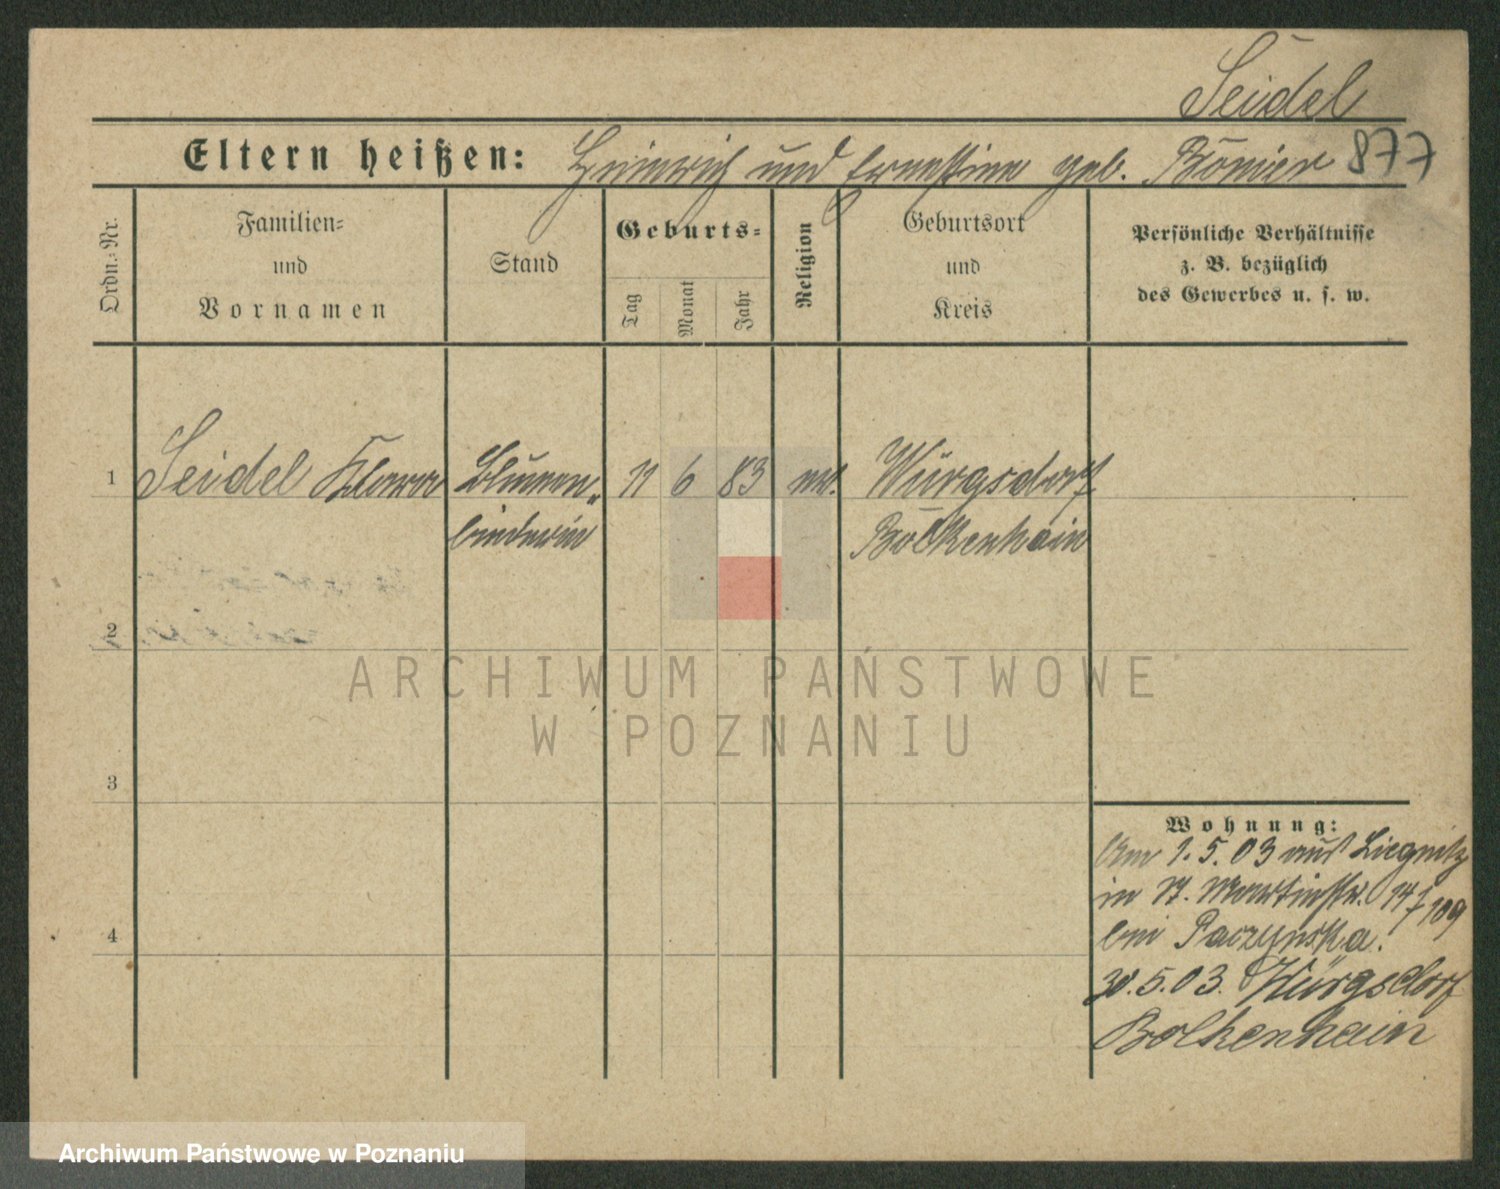 Seidel
Eltern heißen: Heinrich und Ernestine geb. Bömier 877
Ordn.-Nr.
Familien-
und
Vornamen
Stand
Geburts-
Tag
Monat
Jahr
Religion
Geburtsort
und
Kreis
Persönliche Verhältnisse
z. B. bezüglich
des Gewerbes u. s. w.
1 Seidel Klara Blumen- 11 6 83 ev. Würgsdorf
binderin Bolkenhain
2
ARCHIWUM PAŃSTWOWE
W POZNANIU
3
Wohnung:
Am 1.5.03 aus Liegnitz
in St. Martinstr. 14
bei Paczynska.
4
30.5.03. Würgsdorf
Bolkenhain
Archiwum Państwowe w Poznaniu